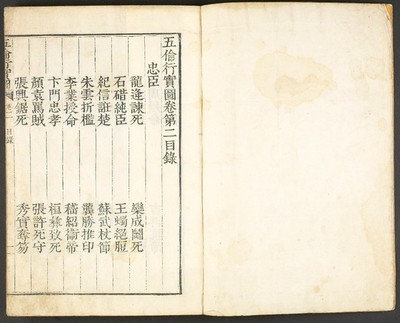 五倫行實圖卷第二目錄
忠臣
龍逄諫死 欒成鬪死
石碏純臣 王蠋絕脰
紀信誑楚 蘇武杖節
朱雲折檻 龔勝推印
李業授命 嵇紹衛帝
卞門忠孝 桓彝致死
顏袁罵賊 張許死守
張興鋸死 秀實奪笏